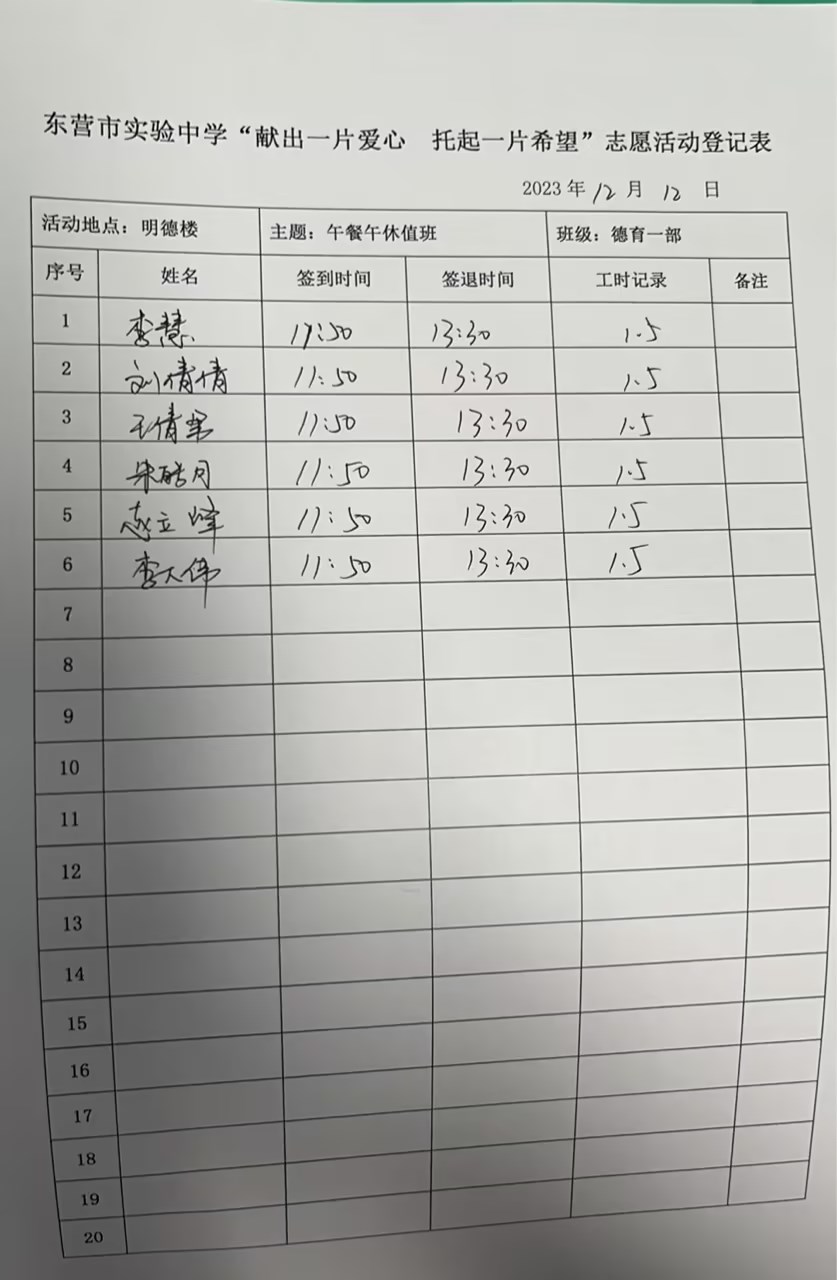 东营市实验中学“献出一片爱心 托起一片希望”志愿活动登记表
2023 年 12 月 12 日
活动地点：明德楼 主题：午餐午休值班 班级：德育一部
序号 姓名 签到时间 签退时间 工时记录 备注
1 李慧 11:50 13:30 1.5
2 刘倩倩 11:50 13:30 1.5
3 王倩 11:50 13:30 1.5
4 朱皓月 11:50 13:30 1.5
5 赵立峰 11:50 13:30 1.5
6 李大伟 11:50 13:30 1.5
7
8
9
10
11
12
13
14
15
16
17
18
19
20